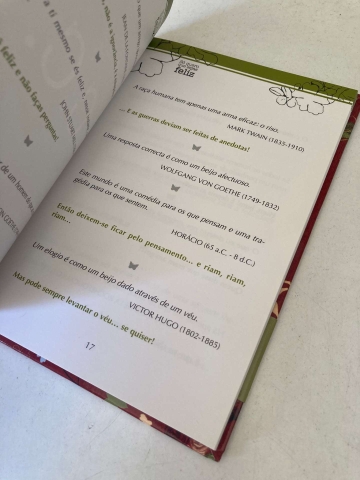 feliz
A raça humana tem apenas uma arma eficaz: o riso.
MARK TWAIN (1835-1910)
... E as guerras deviam ser feitas de anedotas!
Uma resposta correcta é como um beijo afectuoso.
WOLFGANG VON GOETHE (1749-1832)
Este mundo é uma comédia para os que pensam e uma tra-
gédia para os que sentem.
HORÁCIO (65 a.C. - 8 d.C.)
Então deixem-se ficar pelo pensamento... e riam, riam,
riam...
Um elogio é como um beijo dado através de um véu.
VICTOR HUGO (1802-1885)
Mas pode sempre levantar o véu... se quiser!
17
a ti mesmo se és feliz, e
feliz e não faça perguntas!